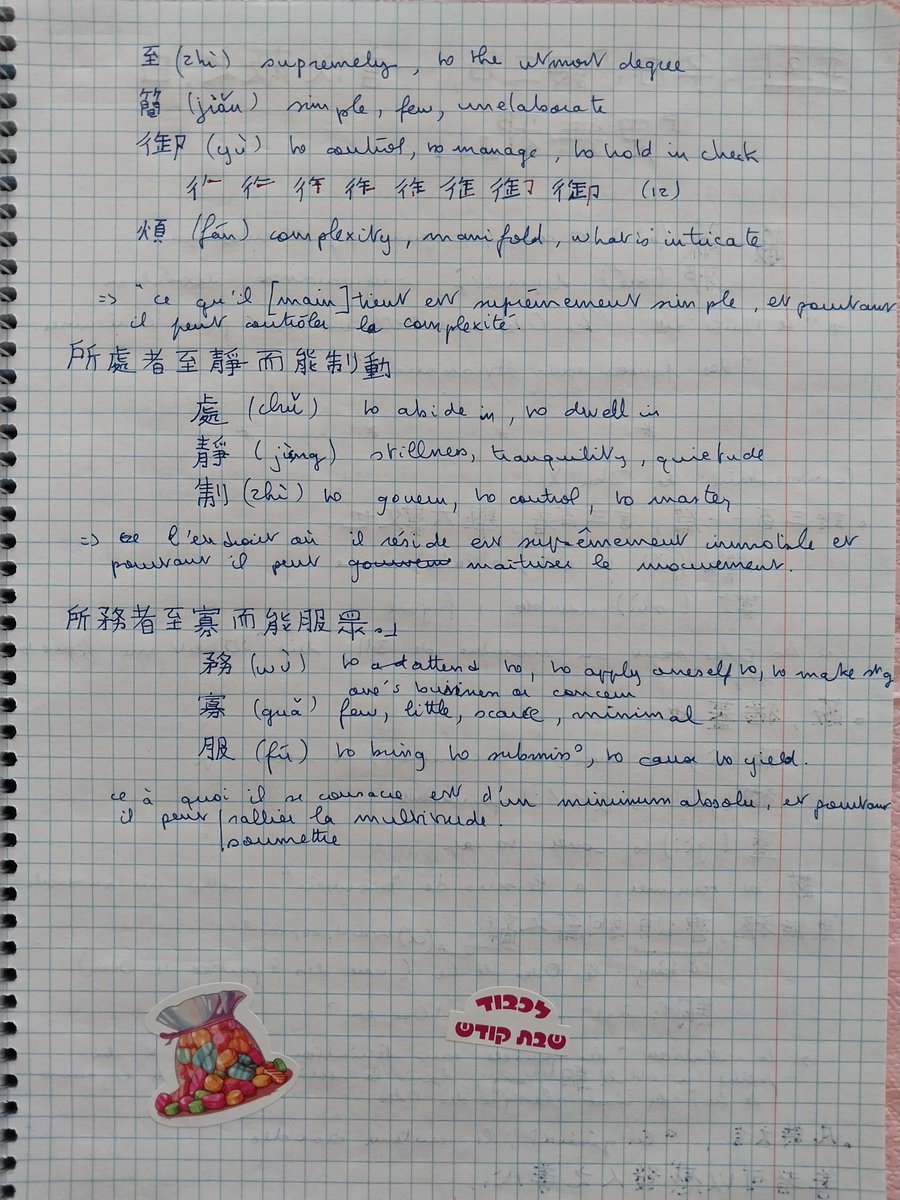 至 (zhì) supremely, to the utmost degree
簡 (jiǎn) simple, few, unelaborate
御 (yù) to control, to manage, to hold in check
(12)
煩 (fán) complexity, manifold, what is intricate
=> "ce qu'il [main]tient est suprêmement simple, et pourtant
il peut contrôler la complexité.
所處者至靜而能制動
處 (chǔ) to abide in, to dwell in
靜 (jìng) stillness, tranquility, quietude
制 (zhì) to govern, to control, to master
=> l'endroit où il réside est suprêmement immobile et
pourtant il peut maîtriser le mouvement.
所務者至寡而能服眾。
務 (wù) to attend to, to apply oneself to, to make stg
one's business or concern
寡 (guǎ) few, little, scarce, minimal
服 (fú) to bring to submis°, to cause to yield.
ce à quoi il se consacre est d'un minimum absolu, et pourtant
il peut rallier la multitude.
soumettre
לכבוד
שבת קודש